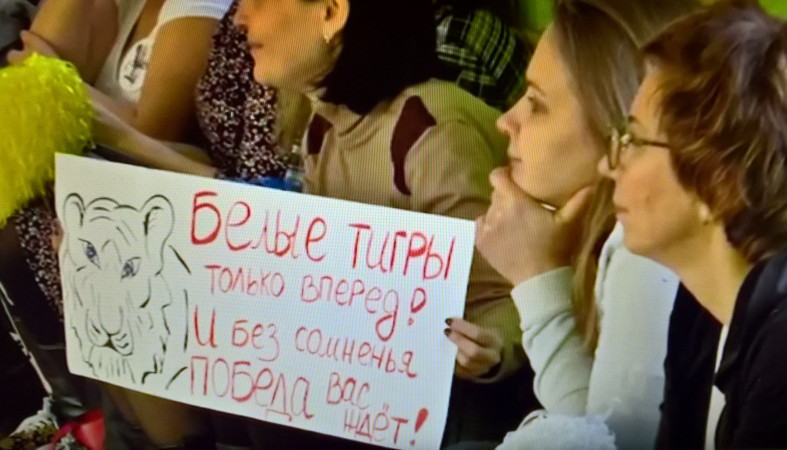 Белые тигры
только вперед!
И без сомненья
победа вас
ждёт!